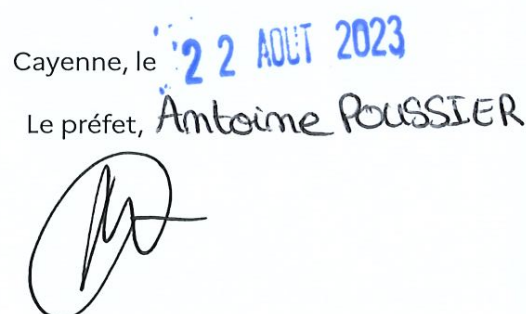 Cayenne, le 22 AOUT 2023
Le préfet, Antoine POUSSIER